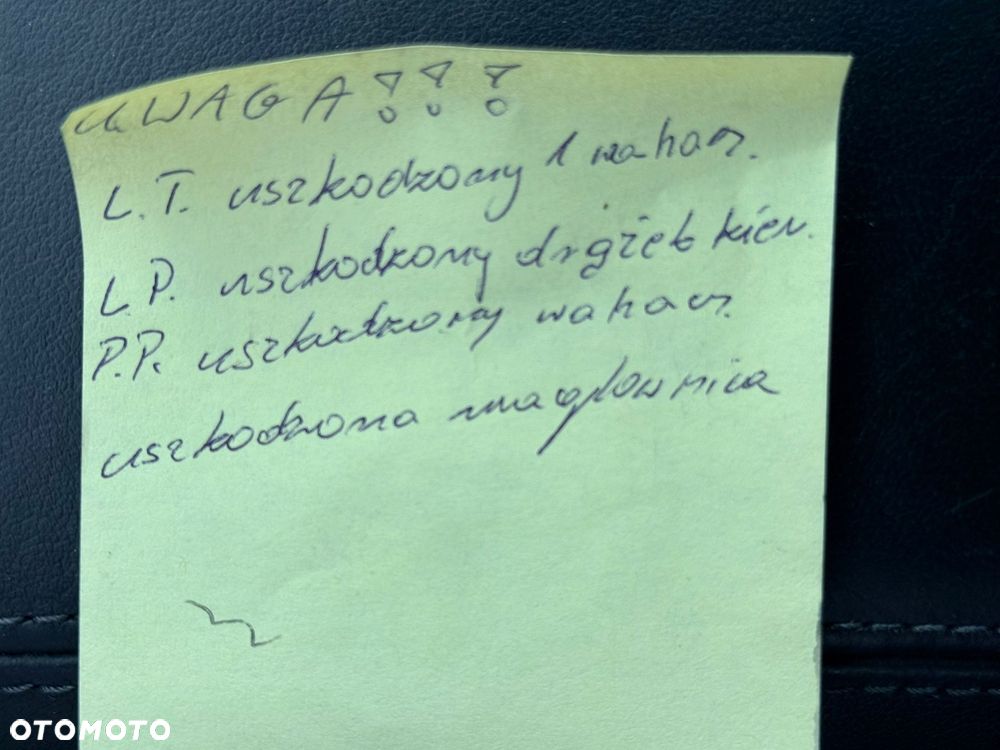 UWAGA!!!
L.T. uszkodzony 1 wahacz.
L.P. uszkodzony drążek kier.
P.P. uszkodzony wahacz.
uszkodzona maglownica
OTOMOTO